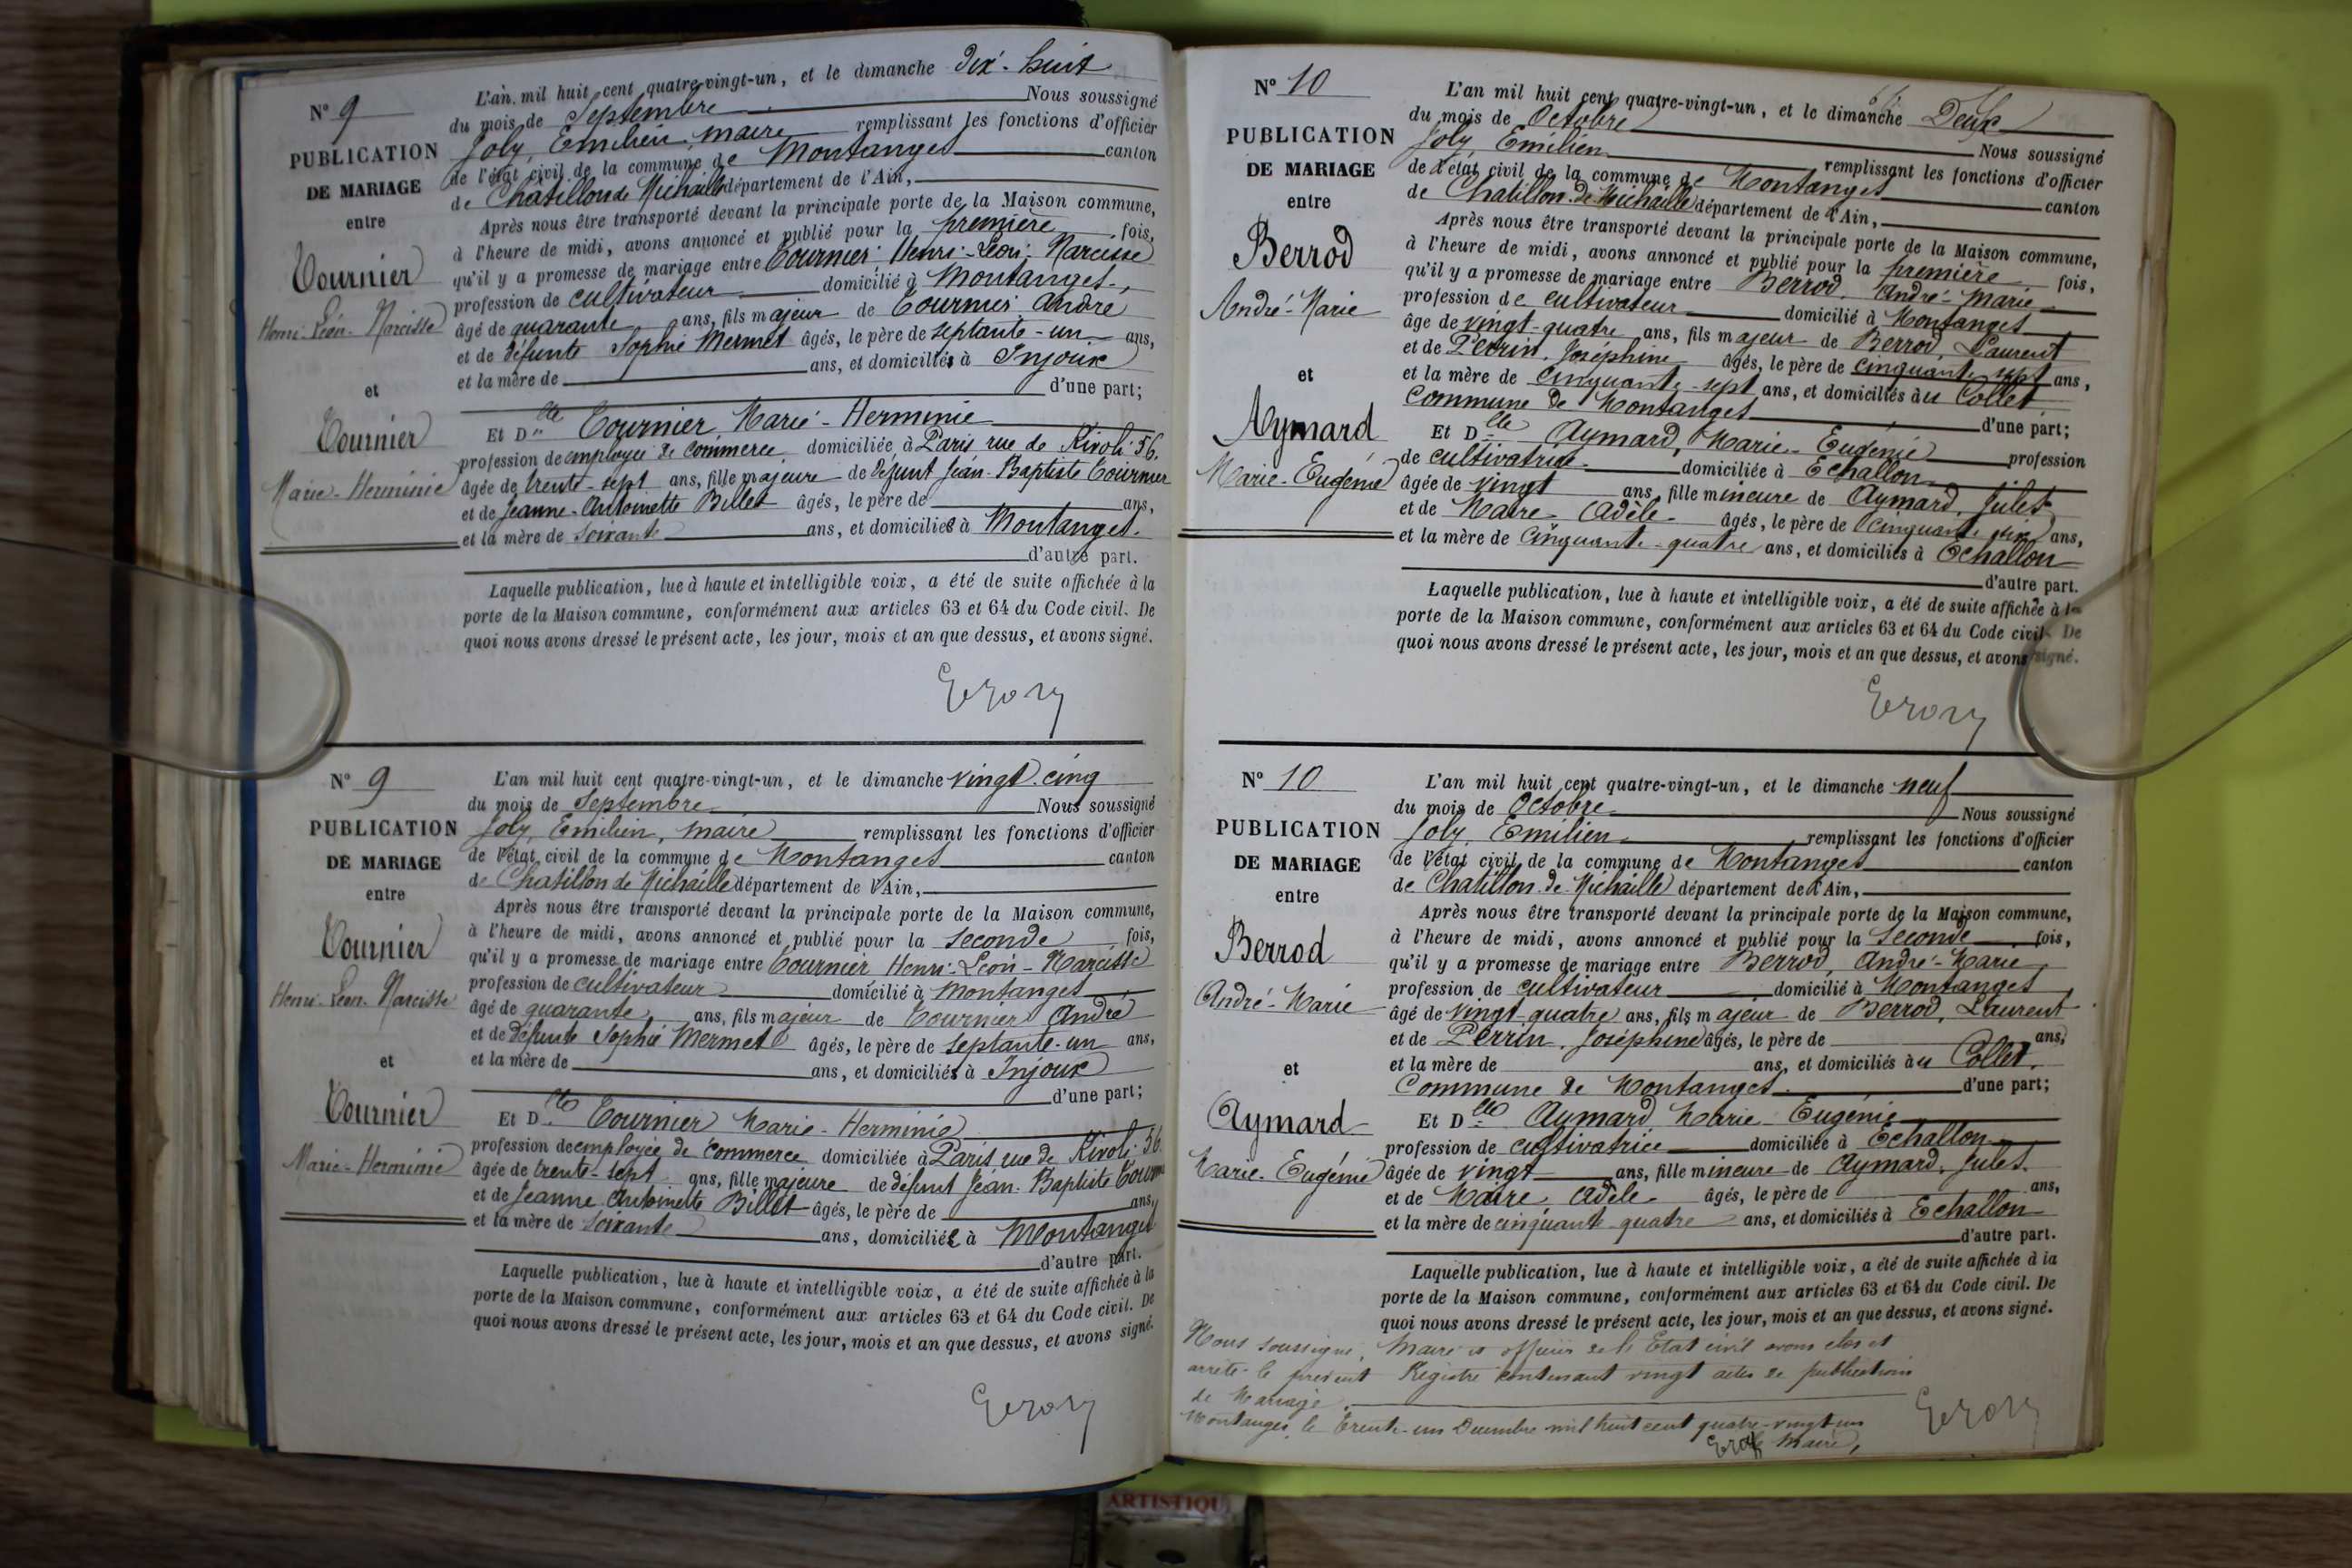 N° 9
PUBLICATION
DE MARIAGE
entre
Tournier
Henri-Léon-Narcisse
et
Tournier
Marie-Herminie
L'an mil huit cent quatre-vingt-un, et le dimanche Dix-huit
du mois de Septembre Nous soussigné
Joly, Emilien, maire remplissant les fonctions d'officier
de l'état civil de la commune de Montanges canton
de Châtillon de Michaille département de l'Ain,
Après nous être transporté devant la principale porte de la Maison commune,
à l'heure de midi, avons annoncé et publié pour la première fois,
qu'il y a promesse de mariage entre Tournier, Henri-Léon, Narcisse
profession de cultivateur domicilié à Montanges,
âgé de quarante ans, fils majeur de Tournier André
et de défunte Sophie Mermet âgés, le père de septante-un ans,
et la mère de ans, et domiciliés à Injoux
d'une part;
Et Dlle Tournier Marie-Herminie
profession de employée de commerce domiciliée à Paris rue de Rivoli 56.
âgée de trente-sept ans, fille majeure de défunt Jean-Baptiste Tournier
et de Jeanne-Antoinette Billet âgés, le père de ans,
et la mère de soixante ans, et domiciliée à Montanges.
d'autre part.
Laquelle publication, lue à haute et intelligible voix, a été de suite affichée à la
porte de la Maison commune, conformément aux articles 63 et 64 du Code civil. De
quoi nous avons dressé le présent acte, les jour, mois et an que dessus, et avons signé.
N° 9
PUBLICATION
DE MARIAGE
entre
Tournier
Henri-Léon-Narcisse
et
Tournier
Marie-Herminie
L'an mil huit cent quatre-vingt-un, et le dimanche vingt-cinq
du mois de Septembre Nous soussigné
Joly, Emilien, maire remplissant les fonctions d'officier
de l'état civil de la commune de Montanges canton
de Chatillon de Michaille département de l'Ain,
Après nous être transporté devant la principale porte de la Maison commune,
à l'heure de midi, avons annoncé et publié pour la seconde fois,
qu'il y a promesse de mariage entre Tournier Henri-Léon-Narcisse
profession de cultivateur domicilié à Montanges
âgé de quarante ans, fils majeur de Tournier André
et de défunte Sophie Mermet âgés, le père de septante-un ans,
et la mère de ans, et domiciliés à Injoux
d'une part;
Et Dlle Tournier Marie-Herminie
profession de employée de commerce domiciliée à Paris rue de Rivoli 56
âgée de trente-sept ans, fille majeure de défunt Jean-Baptiste Tournier
et de Jeanne Antoinette Billet âgés, le père de ans,
et la mère de soixante ans, domiciliée à Montanges
d'autre part.
Laquelle publication, lue à haute et intelligible voix, a été de suite affichée à la
porte de la Maison commune, conformément aux articles 63 et 64 du Code civil. De
quoi nous avons dressé le présent acte, les jour, mois et an que dessus, et avons signé.
N° 10
PUBLICATION
DE MARIAGE
entre
Berrod
André-Marie
et
Aymard
Marie-Eugénie
L'an mil huit cent quatre-vingt-un, et le dimanche Deux
du mois de Octobre Nous soussigné
Joly, Emilien remplissant les fonctions d'officier
de l'état civil de la commune de Montanges canton
de Chatillon de Michaille département de l'Ain,
Après nous être transporté devant la principale porte de la Maison commune,
à l'heure de midi, avons annoncé et publié pour la première fois,
qu'il y a promesse de mariage entre Berrod, André-Marie
profession de cultivateur domicilié à Montanges
âge de vingt-quatre ans, fils majeur de Berrod, Laurent
et de Perrin, Joséphine âgés, le père de cinquante sept ans,
et la mère de cinquante-sept ans, et domiciliés au Collet
Commune de Montanges d'une part;
Et Dlle Aymard, Marie-Eugénie profession
de cultivatrice domiciliée à Echallon
âgée de vingt ans, fille mineure de Aymard, Jules
et de Maire Adèle âgés, le père de cinquante six ans,
et la mère de cinquante-quatre ans, et domiciliés à Echallon
d'autre part.
Laquelle publication, lue à haute et intelligible voix, a été de suite affichée à la
porte de la Maison commune, conformément aux articles 63 et 64 du Code civil. De
quoi nous avons dressé le présent acte, les jour, mois et an que dessus, et avons signé.
N° 10
PUBLICATION
DE MARIAGE
entre
Berrod
André-Marie
et
Aymard
Marie-Eugénie
L'an mil huit cent quatre-vingt-un, et le dimanche neuf
du mois de Octobre Nous soussigné
Joly, Emilien remplissant les fonctions d'officier
de l'état civil de la commune de Montanges canton
de Chatillon-de-Michaille département de l'Ain,
Après nous être transporté devant la principale porte de la Maison commune,
à l'heure de midi, avons annoncé et publié pour la Seconde fois,
qu'il y a promesse de mariage entre Berrod, André-Marie
profession de cultivateur domicilié à Montanges
âgé de vingt-quatre ans, fils majeur de Berrod, Laurent
et de Perrin, Joséphine âgés, le père de ans,
et la mère de ans, et domiciliés au Collet,
Commune de Montanges d'une part;
Et Dlle Aymard Marie Eugénie
profession de cultivatrice domiciliée à Echallon
âgée de vingt ans, fille mineure de Aymard, Jules.
et de Maire, Adèle âgés, le père de ans,
et la mère de cinquante quatre ans, et domiciliés à Echallon
d'autre part.
Laquelle publication, lue à haute et intelligible voix, a été de suite affichée à la
porte de la Maison commune, conformément aux articles 63 et 64 du Code civil. De
quoi nous avons dressé le présent acte, les jour, mois et an que dessus, et avons signé.
Nous soussigné, Maire et officier de l'Etat civil avons clos et
arrêté le présent Registre contenant vingt actes de publications
de Mariage.
Montanges, le trente-un Décembre mil huit cent quatre-vingt-un
Maire,
ARTISTIQU